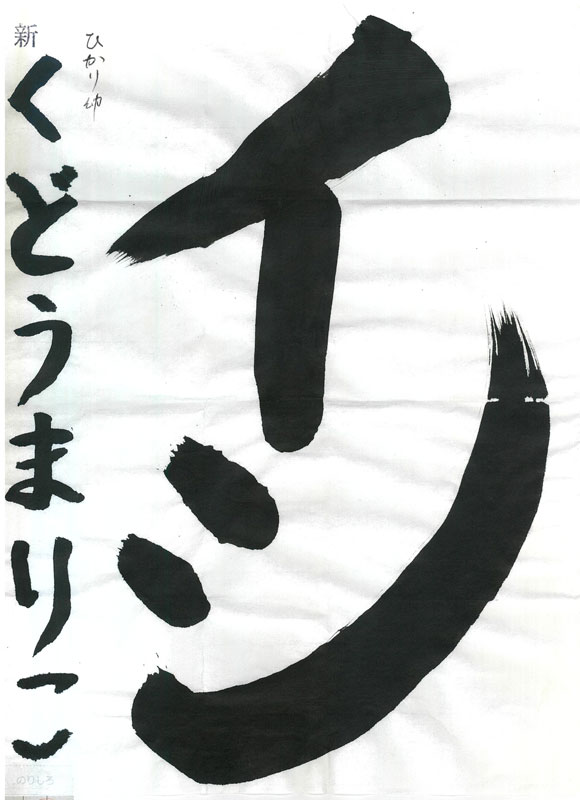 イシ
ひかり幼
新
くどうまりこ
のりしろ